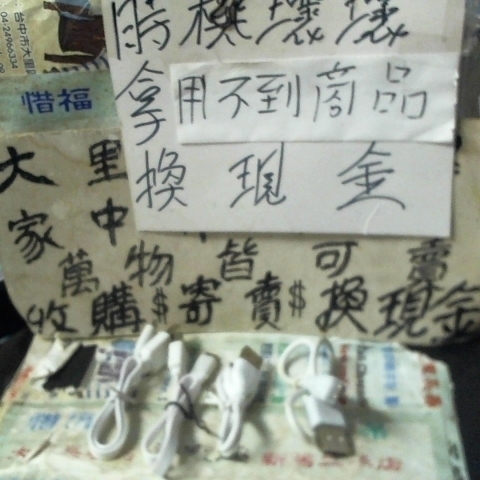 台中市大里區
04-24966334
時機壞壞
惜福
拿用不到商品
換現金
大里
家中
萬物皆可賣
收購$寄賣$換現金
惜福